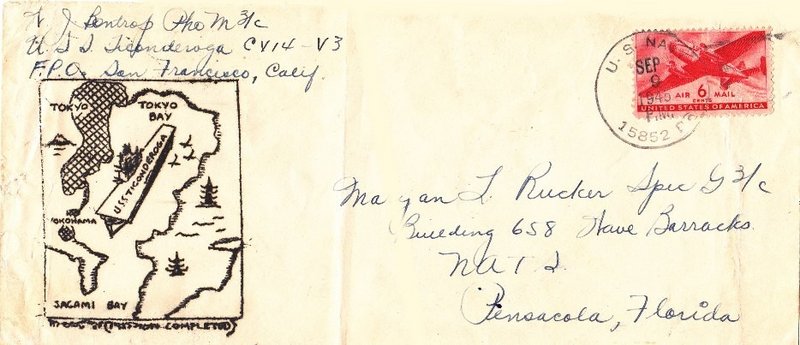 J
Pho M 3/c
U.S.S. Ticonderoga CV14-V3
F.P.O. San Francisco, Calif.
TOKYO
TOKYO BAY
USS TICONDEROGA
YOKOHAMA
SAGAMI BAY
(MISSION COMPLETED)
U.S. NA
SEP
9
1945
15852
AIR 6 MAIL
CENTS
UNITED STATES OF AMERICA
L. Rucker Spec G 3/c
Building 658 Wave Barracks
Pensacola, Florida